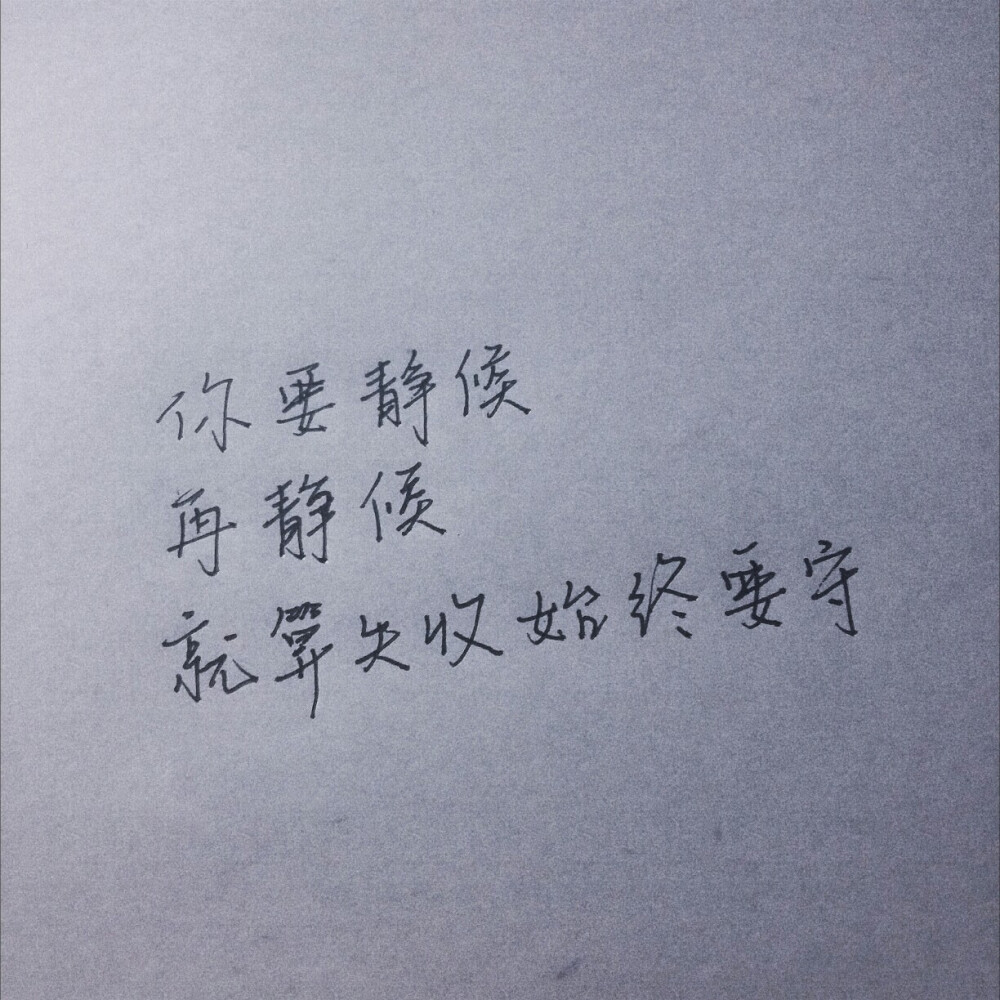 你要静候
再静候
就算失收始终要守